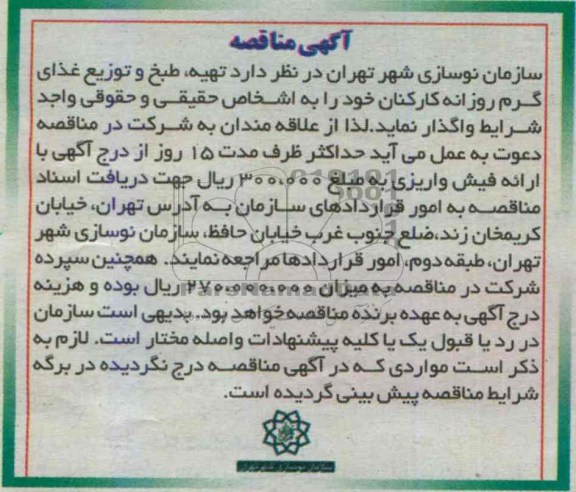 آگهی مناقصه
سازمان نوسازی شهر تهران در نظر دارد تهیه، طبخ و توزیع غذای
گرم روزانه کارکنان خود را به اشخاص حقیقی و حقوقی واجد
شرایط واگذار نماید.لذا از علاقه مندان به شرکت در مناقصه
دعوت به عمل می آید حداکثر ظرف مدت ۱۵ روز از درج آگهی با
ارائه فیش واریزی به مبلغ ۳۰۰،۰۰۰ ریال جهت دریافت اسناد
مناقصه به امور قراردادهای سازمان به آدرس تهران، خیابان
کریمخان زند،ضلع جنوب غرب خیابان حافظ، سازمان نوسازی شهر
تهران، طبقه دوم، امور قراردادها مراجعه نمایند. همچنین سپرده
شرکت در مناقصه به میزان ۲۷۰،۰۰۰،۰۰۰ ریال بوده و هزینه
درج آگهی به عهده برنده مناقصه خواهد بود. بدیهی است سازمان
در رد یا قبول یک یا کلیه پیشنهادات واصله مختار است. لازم به
ذکر است مواردی که در آگهی مناقصه درج نگردیده در برگه
شرایط مناقصه پیش بینی گردیده است.
سازمان نوسازی شهر تهران